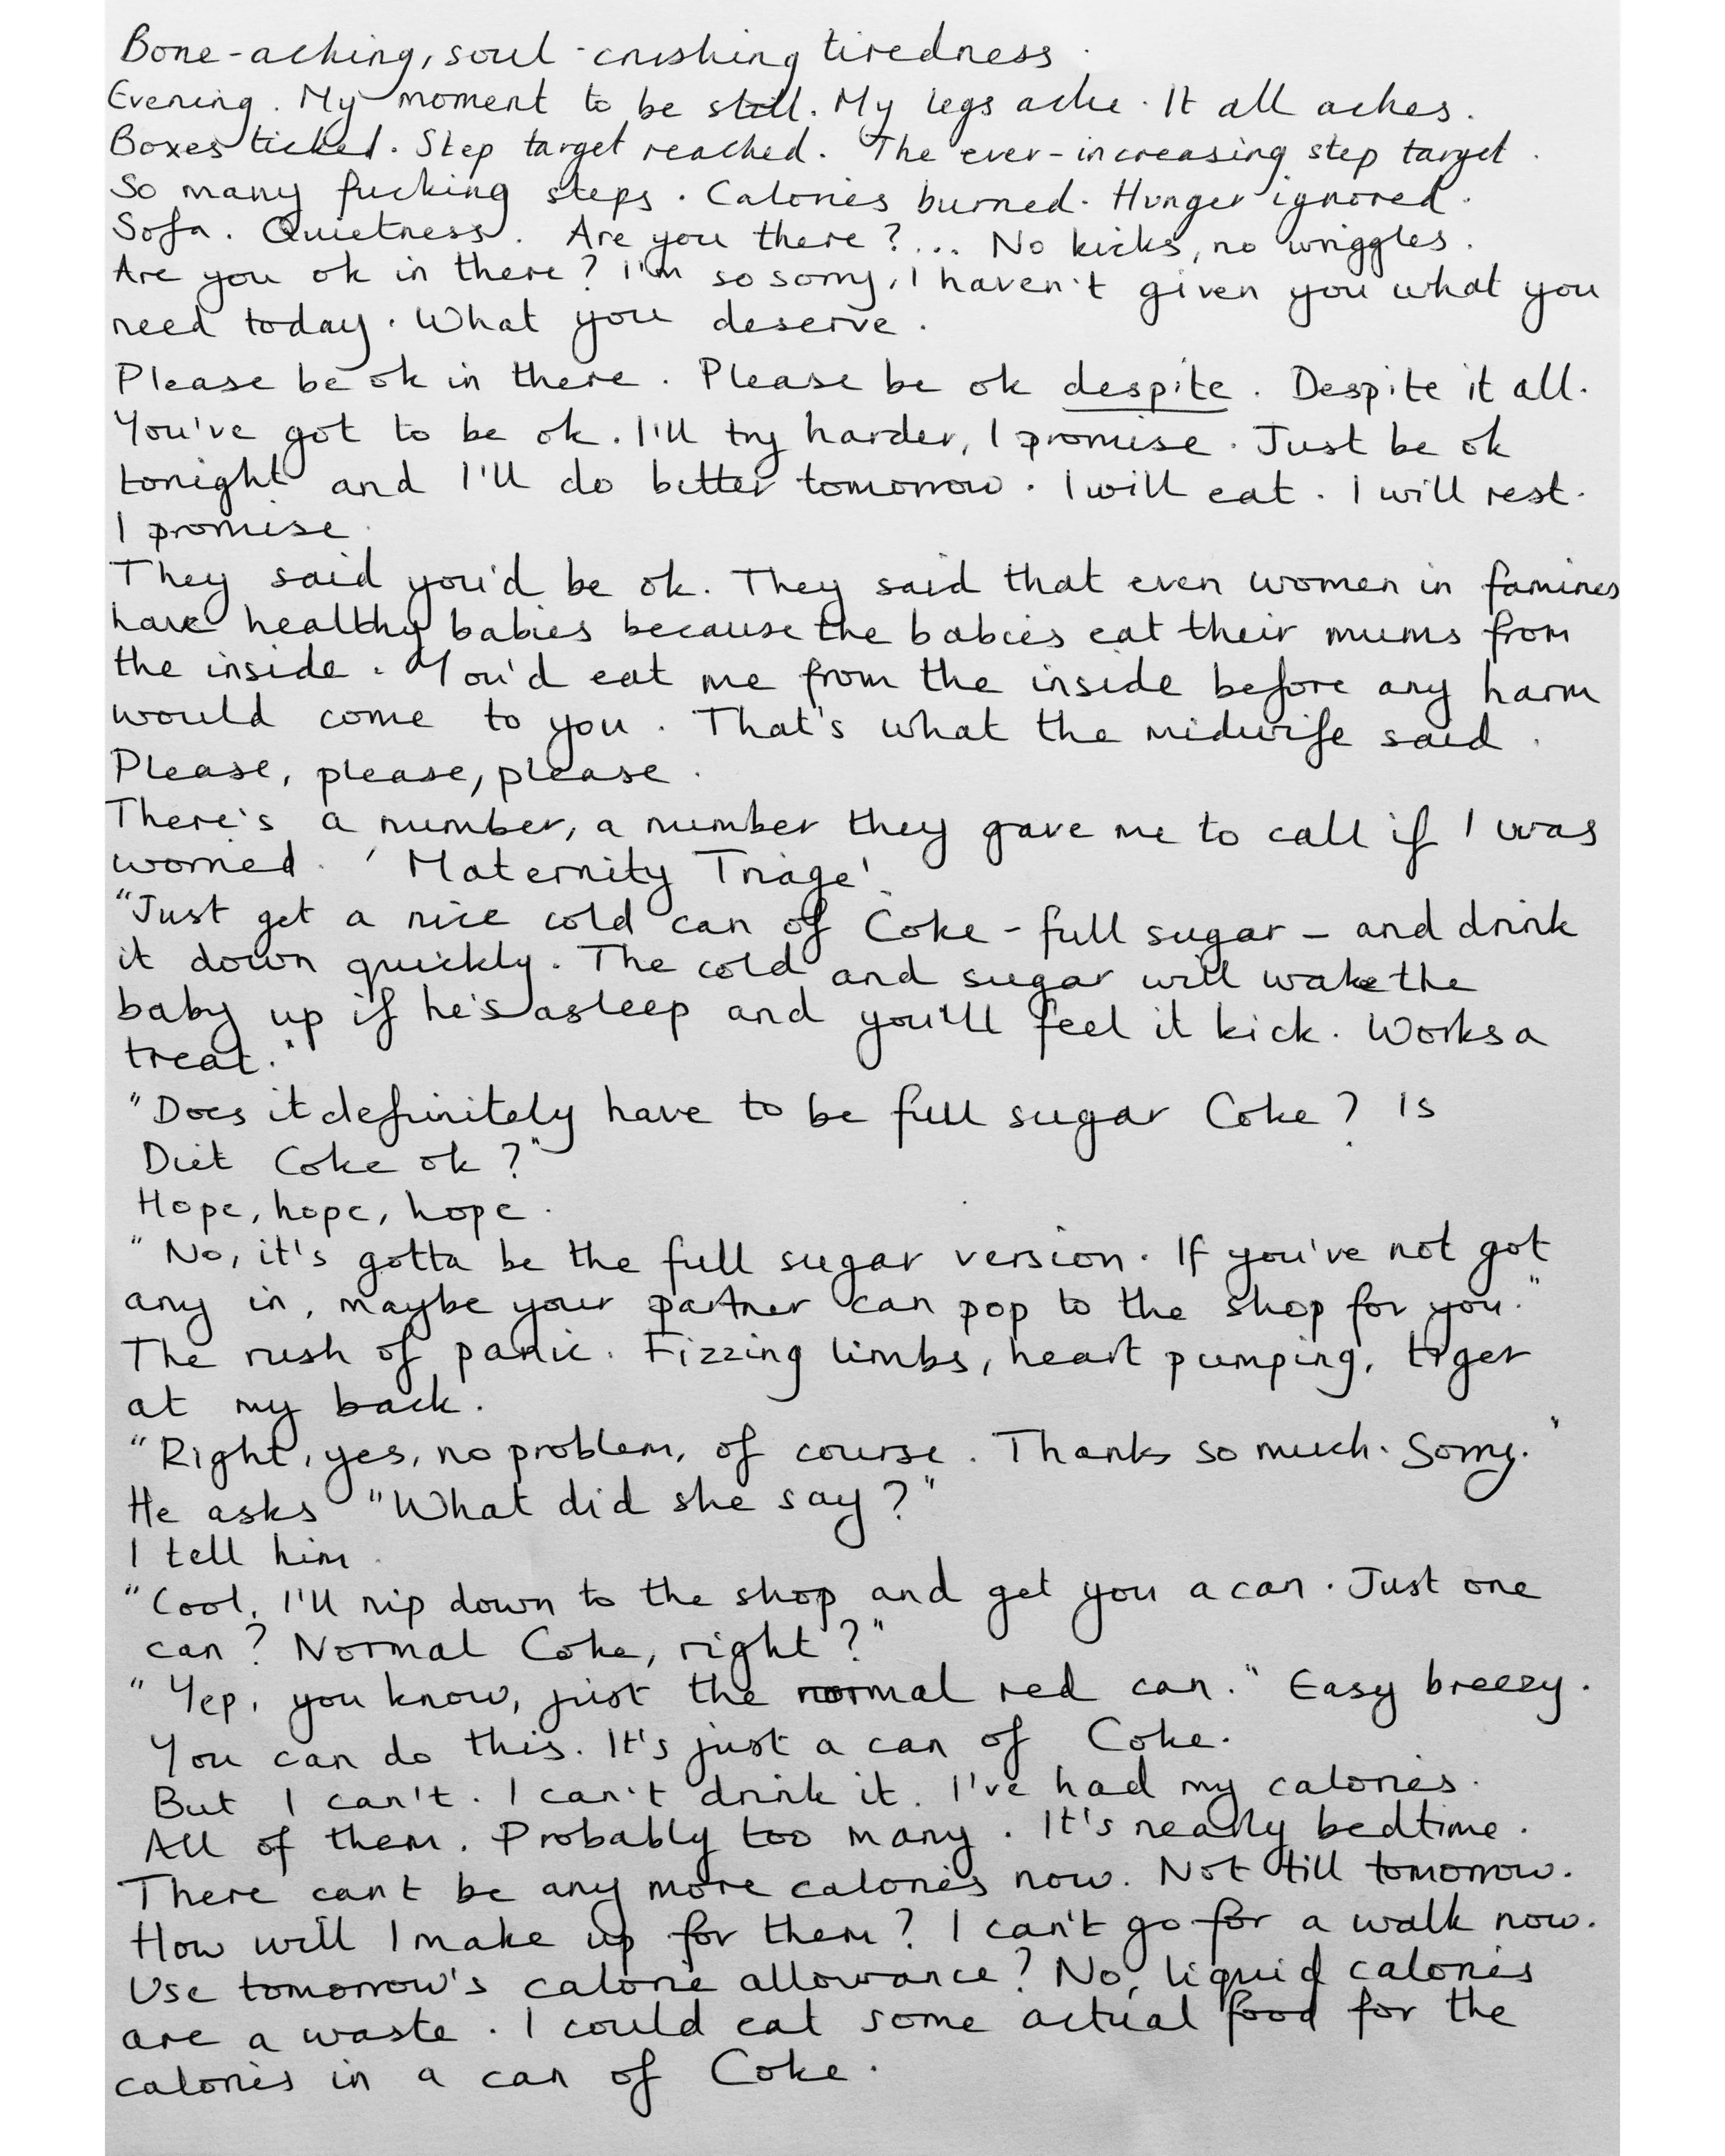 Bone-aching, soul-crushing tiredness.
Evening. My moment to be still. My legs ache. It all aches.
Boxes ticked. Step target reached. The ever-increasing step target.
So many fucking steps. Calories burned. Hunger ignored.
Sofa. Quietness. Are you there?... No kicks, no wriggles.
Are you ok in there? I'm so sorry, I haven't given you what you
need today. What you deserve.
Please be ok in there. Please be ok despite. Despite it all.
You've got to be ok. I'll try harder, I promise. Just be ok
tonight and I'll do better tomorrow. I will eat. I will rest.
I promise.
They said you'd be ok. They said that even women in famines
have healthy babies because the babies eat their mums from
the inside. You'd eat me from the inside before any harm
would come to you. That's what the midwife said.
Please, please, please.
There's a number, a number they gave me to call if I was
worried. 'Maternity Triage'.
"Just get a nice cold can of Coke - full sugar - and drink
it down quickly. The cold and sugar will wake the
baby up if he's asleep and you'll feel it kick. Works a
treat."
"Does it definitely have to be full sugar Coke? Is
Diet Coke ok?"
Hope, hope, hope.
"No, it's gotta be the full sugar version. If you've not got
any in, maybe your partner can pop to the shop for you."
The rush of panic. Fizzing limbs, heart pumping, tiger
at my back.
"Right, yes, no problem, of course. Thanks so much. Sorry."
He asks "What did she say?"
I tell him.
"Cool, I'll nip down to the shop and get you a can. Just one
can? Normal Coke, right?"
"Yep, you know, just the normal red can." Easy breezy.
You can do this. It's just a can of Coke.
But I can't. I can't drink it. I've had my calories.
All of them. Probably too many. It's nearly bedtime.
There can't be any more calories now. Not till tomorrow.
How will I make up for them? I can't go for a walk now.
Use tomorrow's calorie allowance? No, liquid calories
are a waste. I could eat some actual food for the
calories in a can of Coke.